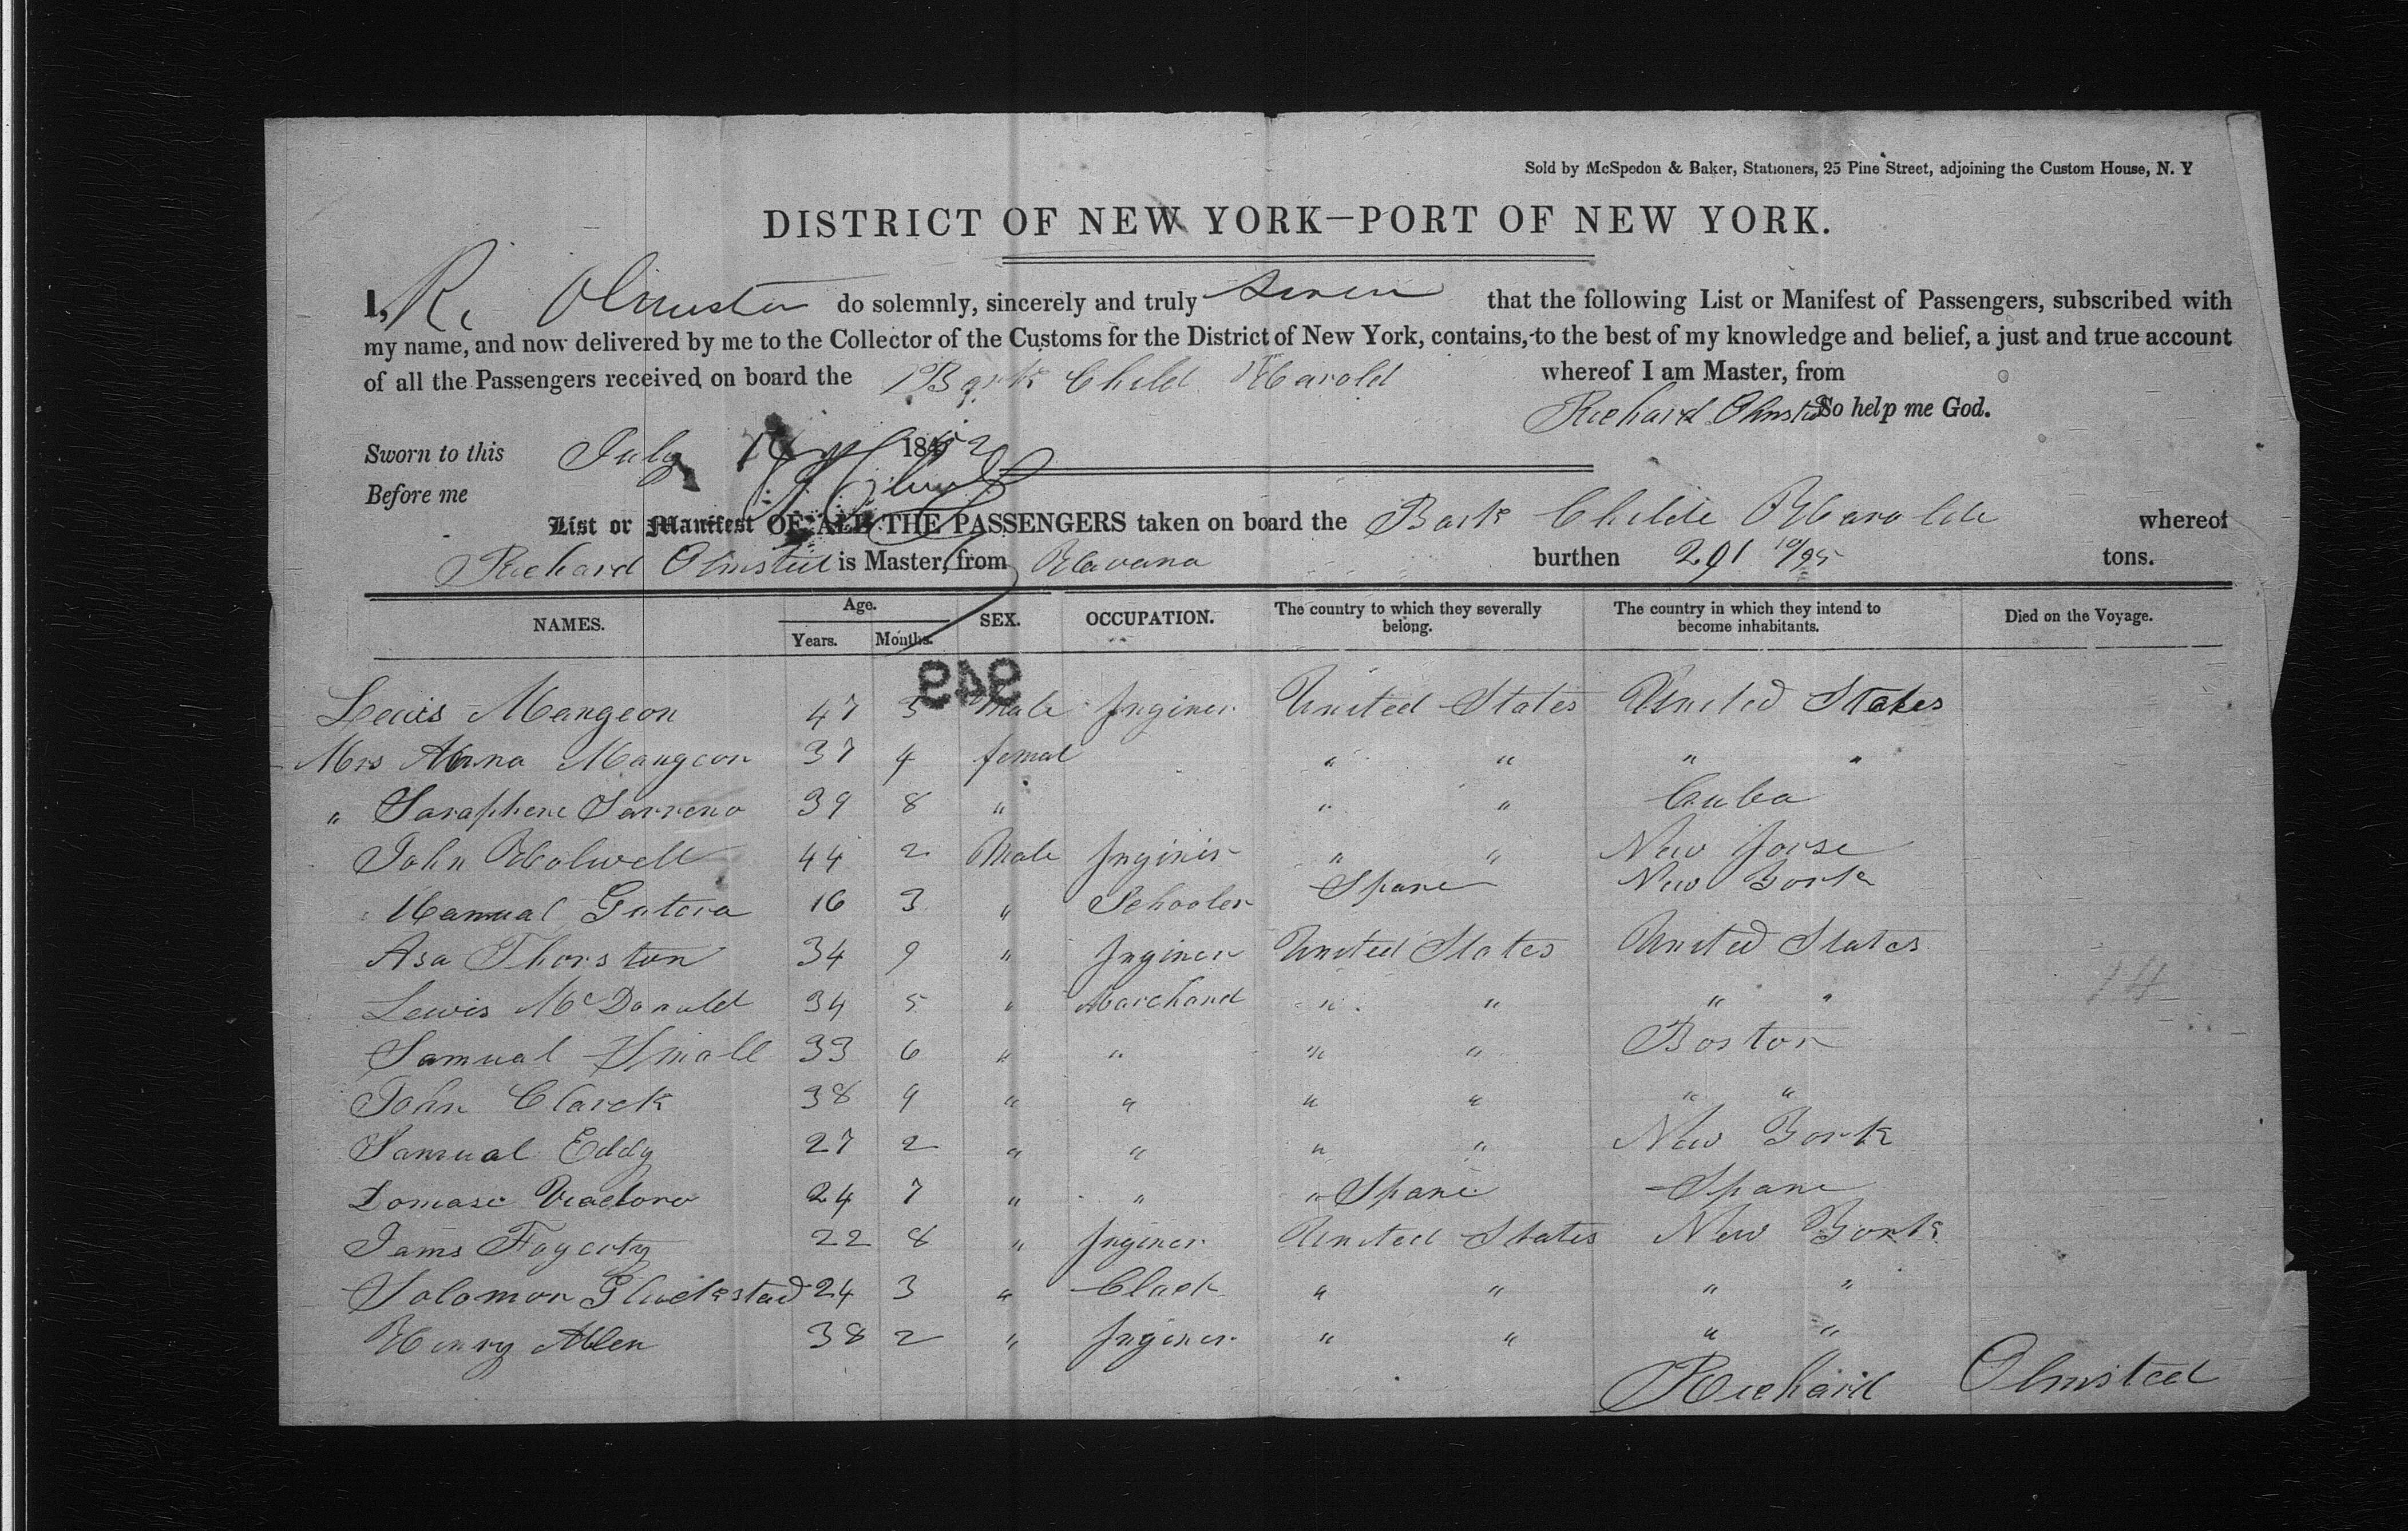 Sold by McSpedon & Baker, Stationers, 25 Pine Street, adjoining the Custom House, N. Y
DISTRICT OF NEW YORK—PORT OF NEW YORK.
I, R. Olmsted do solemnly, sincerely and truly swear that the following List or Manifest of Passengers, subscribed with
my name, and now delivered by me to the Collector of the Customs for the District of New York, contains, to the best of my knowledge and belief, a just and true account
of all the Passengers received on board the Bark Child Harold whereof I am Master, from
Richard Olmsted So help me God.
Sworn to this July 184
Before me
List or Manifest OF ALL THE PASSENGERS taken on board the Bark Childe Harolde whereof
Richard Olmsted is Master, from Havana burthen 291 10/95 tons.
NAMES. Age. Years. Months. SEX. OCCUPATION. The country to which they severally belong. The country in which they intend to become inhabitants. Died on the Voyage.
949
Lewis Mangeon 47 5 Male Inginer United States United States
Mrs Anna Mangeon 37 4 femal " " " "
" Saraphene Sarreno 39 8 " " " Cuba
John Holwell 44 2 Male Inginir " " New Jorse
Manual Gutera 16 3 " Schooler Spane New York
Asa Thorston 34 9 " Inginer United States United States
Lewis McDonald 34 5 " Marchand " " " "
14
Samual Small 33 6 " " " " Boston
John Clarck 38 9 " " " " " "
Samual Eddy 27 2 " " " " New York
Domase 24 7 " " " Spane Spane
Jams Fogerty 22 8 " Inginer United States New York
Solomon Gluckstad 24 3 " Clack " " " "
Henry Allen 38 2 " Inginer " " " "
Richard Olmsted